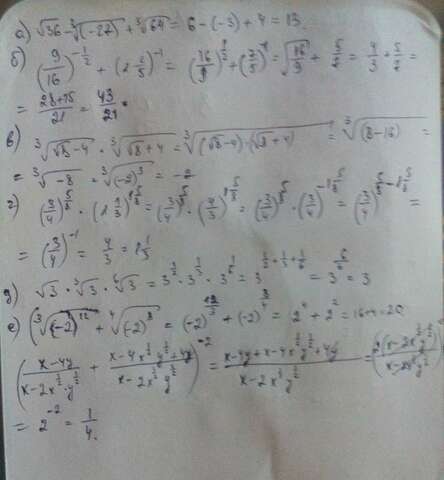 а) √36 - ∛(-27) + ∛64 = 6 - (-3) + 4 = 13
б) (9/16)^(-1/2) + (2 4/5)^(-1) = (16/9)^(1/2) + ()^(-1) = √(16/9) + = 4/3 + =
= 28+15/21 = 43/21.
в) ∛(√8-4) · ∛(√8+4) = ∛((√8-4)·(√8+4)) = ∛(8-16) =
= ∛(-8) = ∛(-2)³ = -2
г) (3/4)^() · (1 1/3)^() = (3/4)^() · (4/3)^() = (3/4)^() · (3/4)^() = (3/4)^() =
= (3/4)^(-1) = 4/3 = 1 1/3
д) √3 · ∛3 · ⁶√3 = 3^(1/2) · 3^(1/3) · 3^(1/6) = 3^(1/2+1/3+1/6) = 3^(6/6) = 3
е) ∛(-2)^12 + ⁴√(-2)^8 = (-2)^(12/3) + (-2)^(8/4) = 2^4 + 2^2 = 16+4=20
(x-4y/x-2x^(1/2)·y^(1/2) + x-4x^(1/2)y^(1/2)+4y/x-2x^(1/2)y^(1/2))^(-2) = x-4y+x-4x^(1/2)y^(1/2)+4y/x-2x^(1/2)y^(1/2) = (2(x-2x^(1/2)y^(1/2))/x-2x^(1/2)y^(1/2))
= 2^(-2) = 1/4.